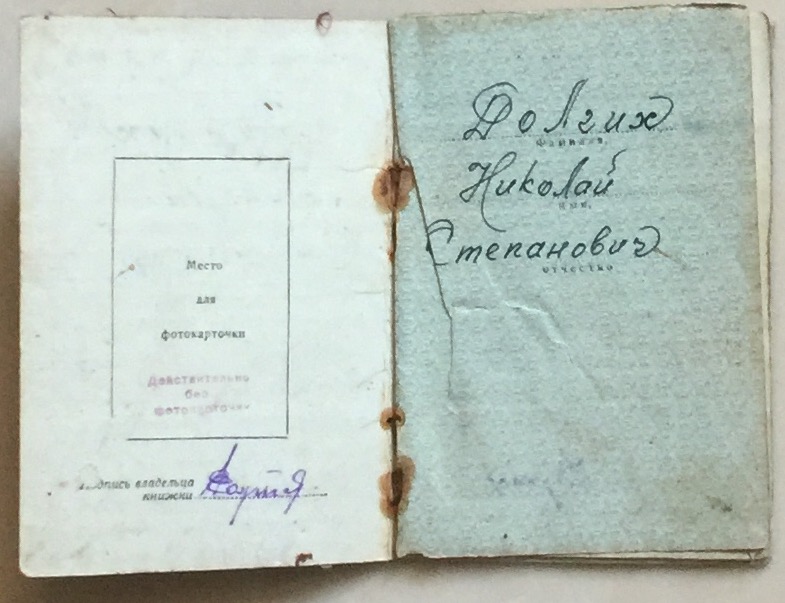 Место
для
фотокарточки
Действительно
без
фотокарточки
Подпись владельца
книжки
Долгих
Фамилия,
Николай
имя,
Степанович
отчество